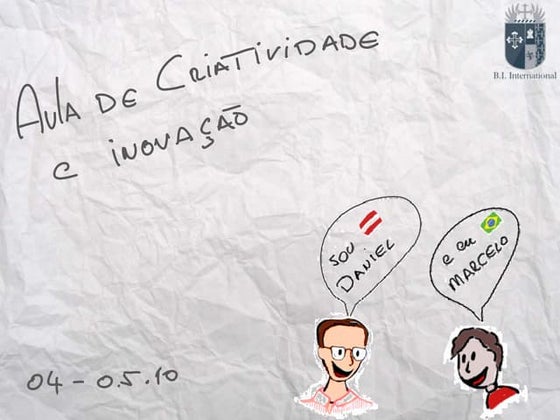 B.I. International
AULA DE CRIATIVIDADE
e INOVAÇÃO
SOU
DANIEL
e eu
MARCELO
04 - 05.10